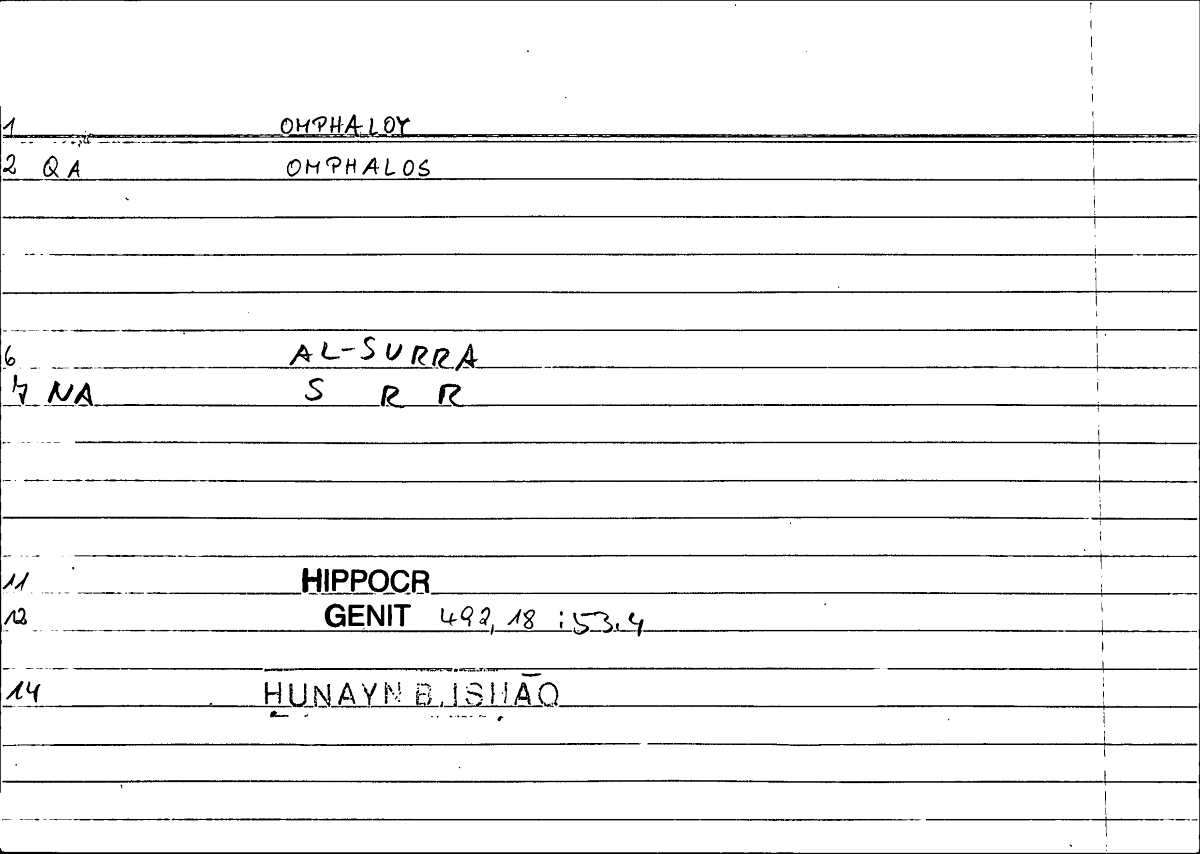 1 OMPHALOY
2 QA OMPHALOS
6 AL-SURRA
7 NA S R R
11 HIPPOCR
12 GENIT 492,18 :53.4
14 HUNAYN B.ISHĀQ